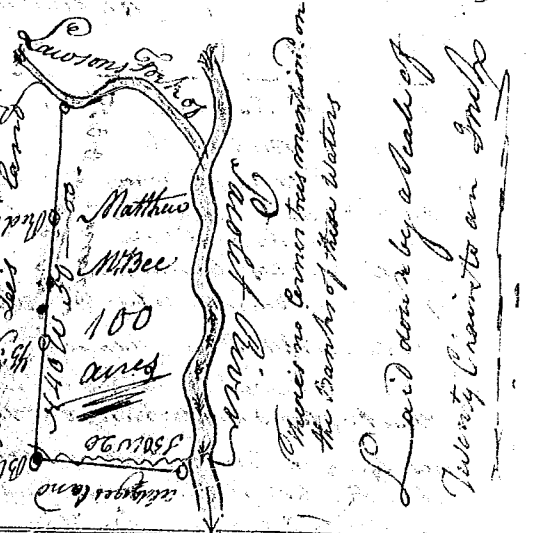 Lawsons Fork of
Pacolet River
Matthew
McBee
100
acres
land
land
There's no Corner trees mention'd on
the Banks of these Waters
Laid down by a Scale of
Twenty Chains to an Inch